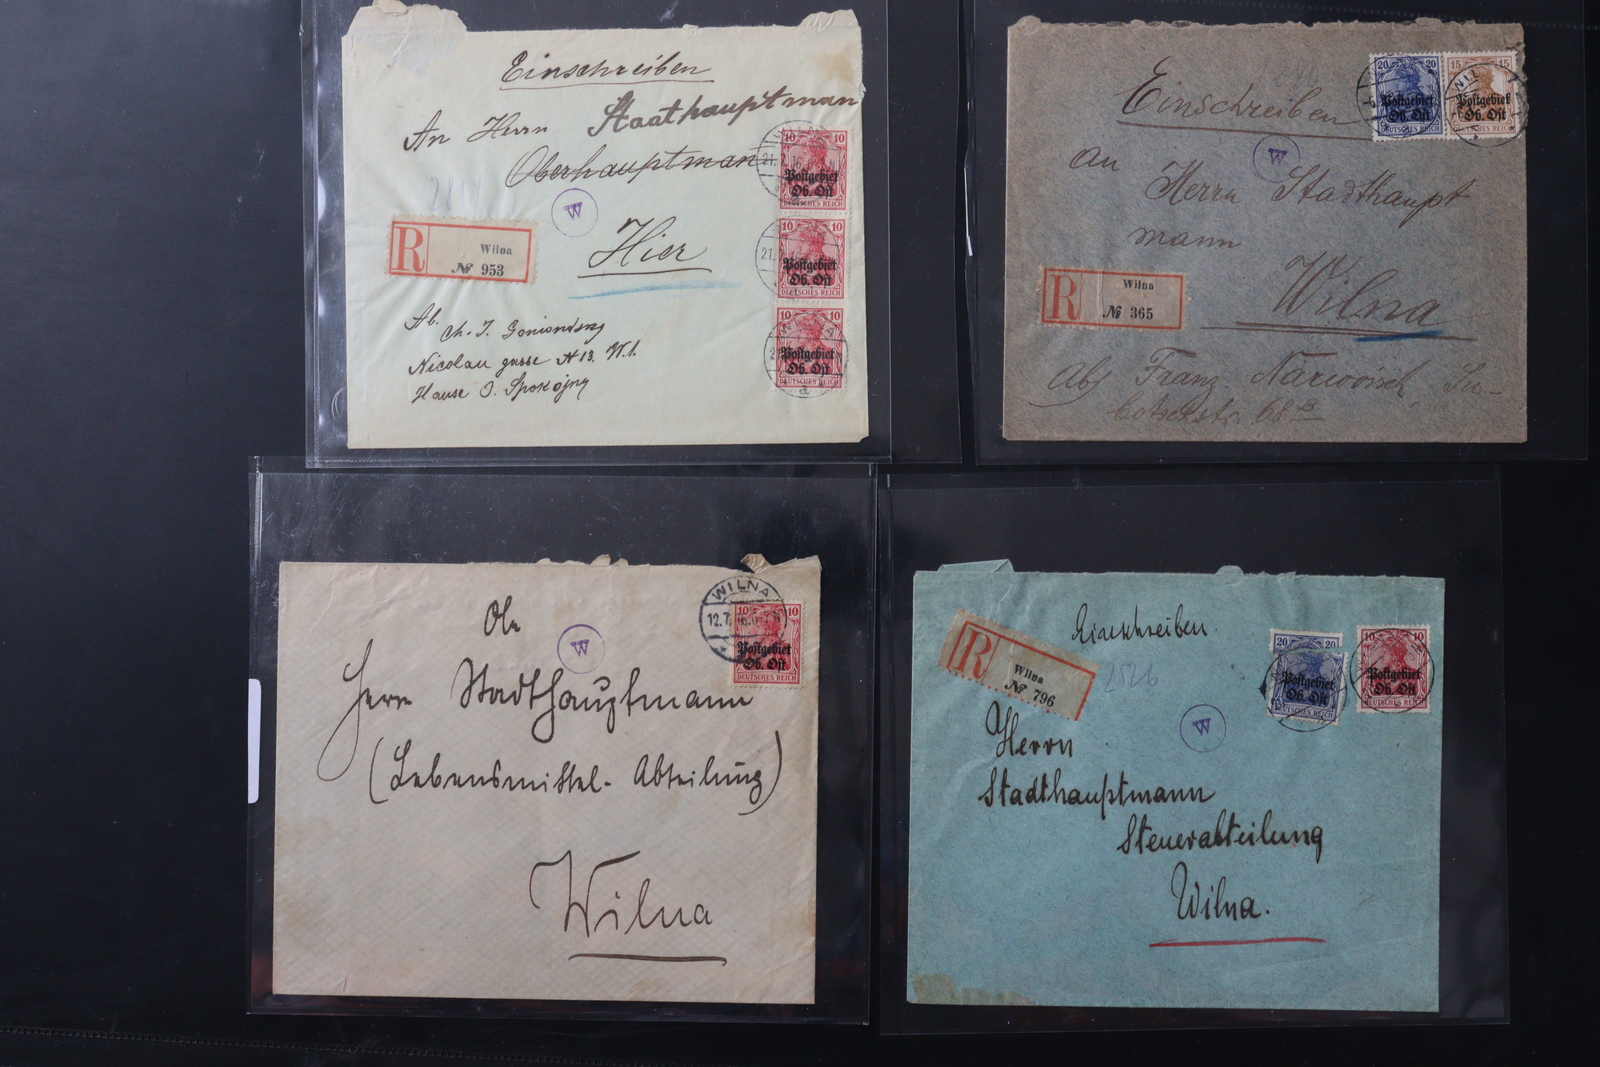 Einschreiben
An Herrn Staathauptman
Oberhauptman
Hier
R Wilna
№ 953
W
Ab.
Nicolau gasse № 13. W.1.
Hause O. Spokojny
10 10
Postgebiet
Ob. Ost
DEUTSCHES REICH
10 10
Postgebiet
Ob. Ost
DEUTSCHES REICH
10 10
Postgebiet
Ob. Ost
DEUTSCHES REICH
WILNA
21.7.16
Einschreiben
an
Herrn Stadthaupt
mann
Wilna
R Wilna
№ 365
W
Abs Franz
68
20 20
Postgebiet
Ob. Ost
DEUTSCHES REICH
15 15
Postgebiet
Ob. Ost
DEUTSCHES REICH
W
Herrn Stadthauptmann
(Lebensmittel-Abteilung)
Wilna
WILNA
12.7.16
10 10
Postgebiet
Ob. Ost
DEUTSCHES REICH
Einschreiben
R Wilna
№ 796
W
Herrn
Stadthauptmann
Steuerabteilung
Wilna.
20 20
Postgebiet
Ob. Ost
DEUTSCHES REICH
10 10
Postgebiet
Ob. Ost
DEUTSCHES REICH